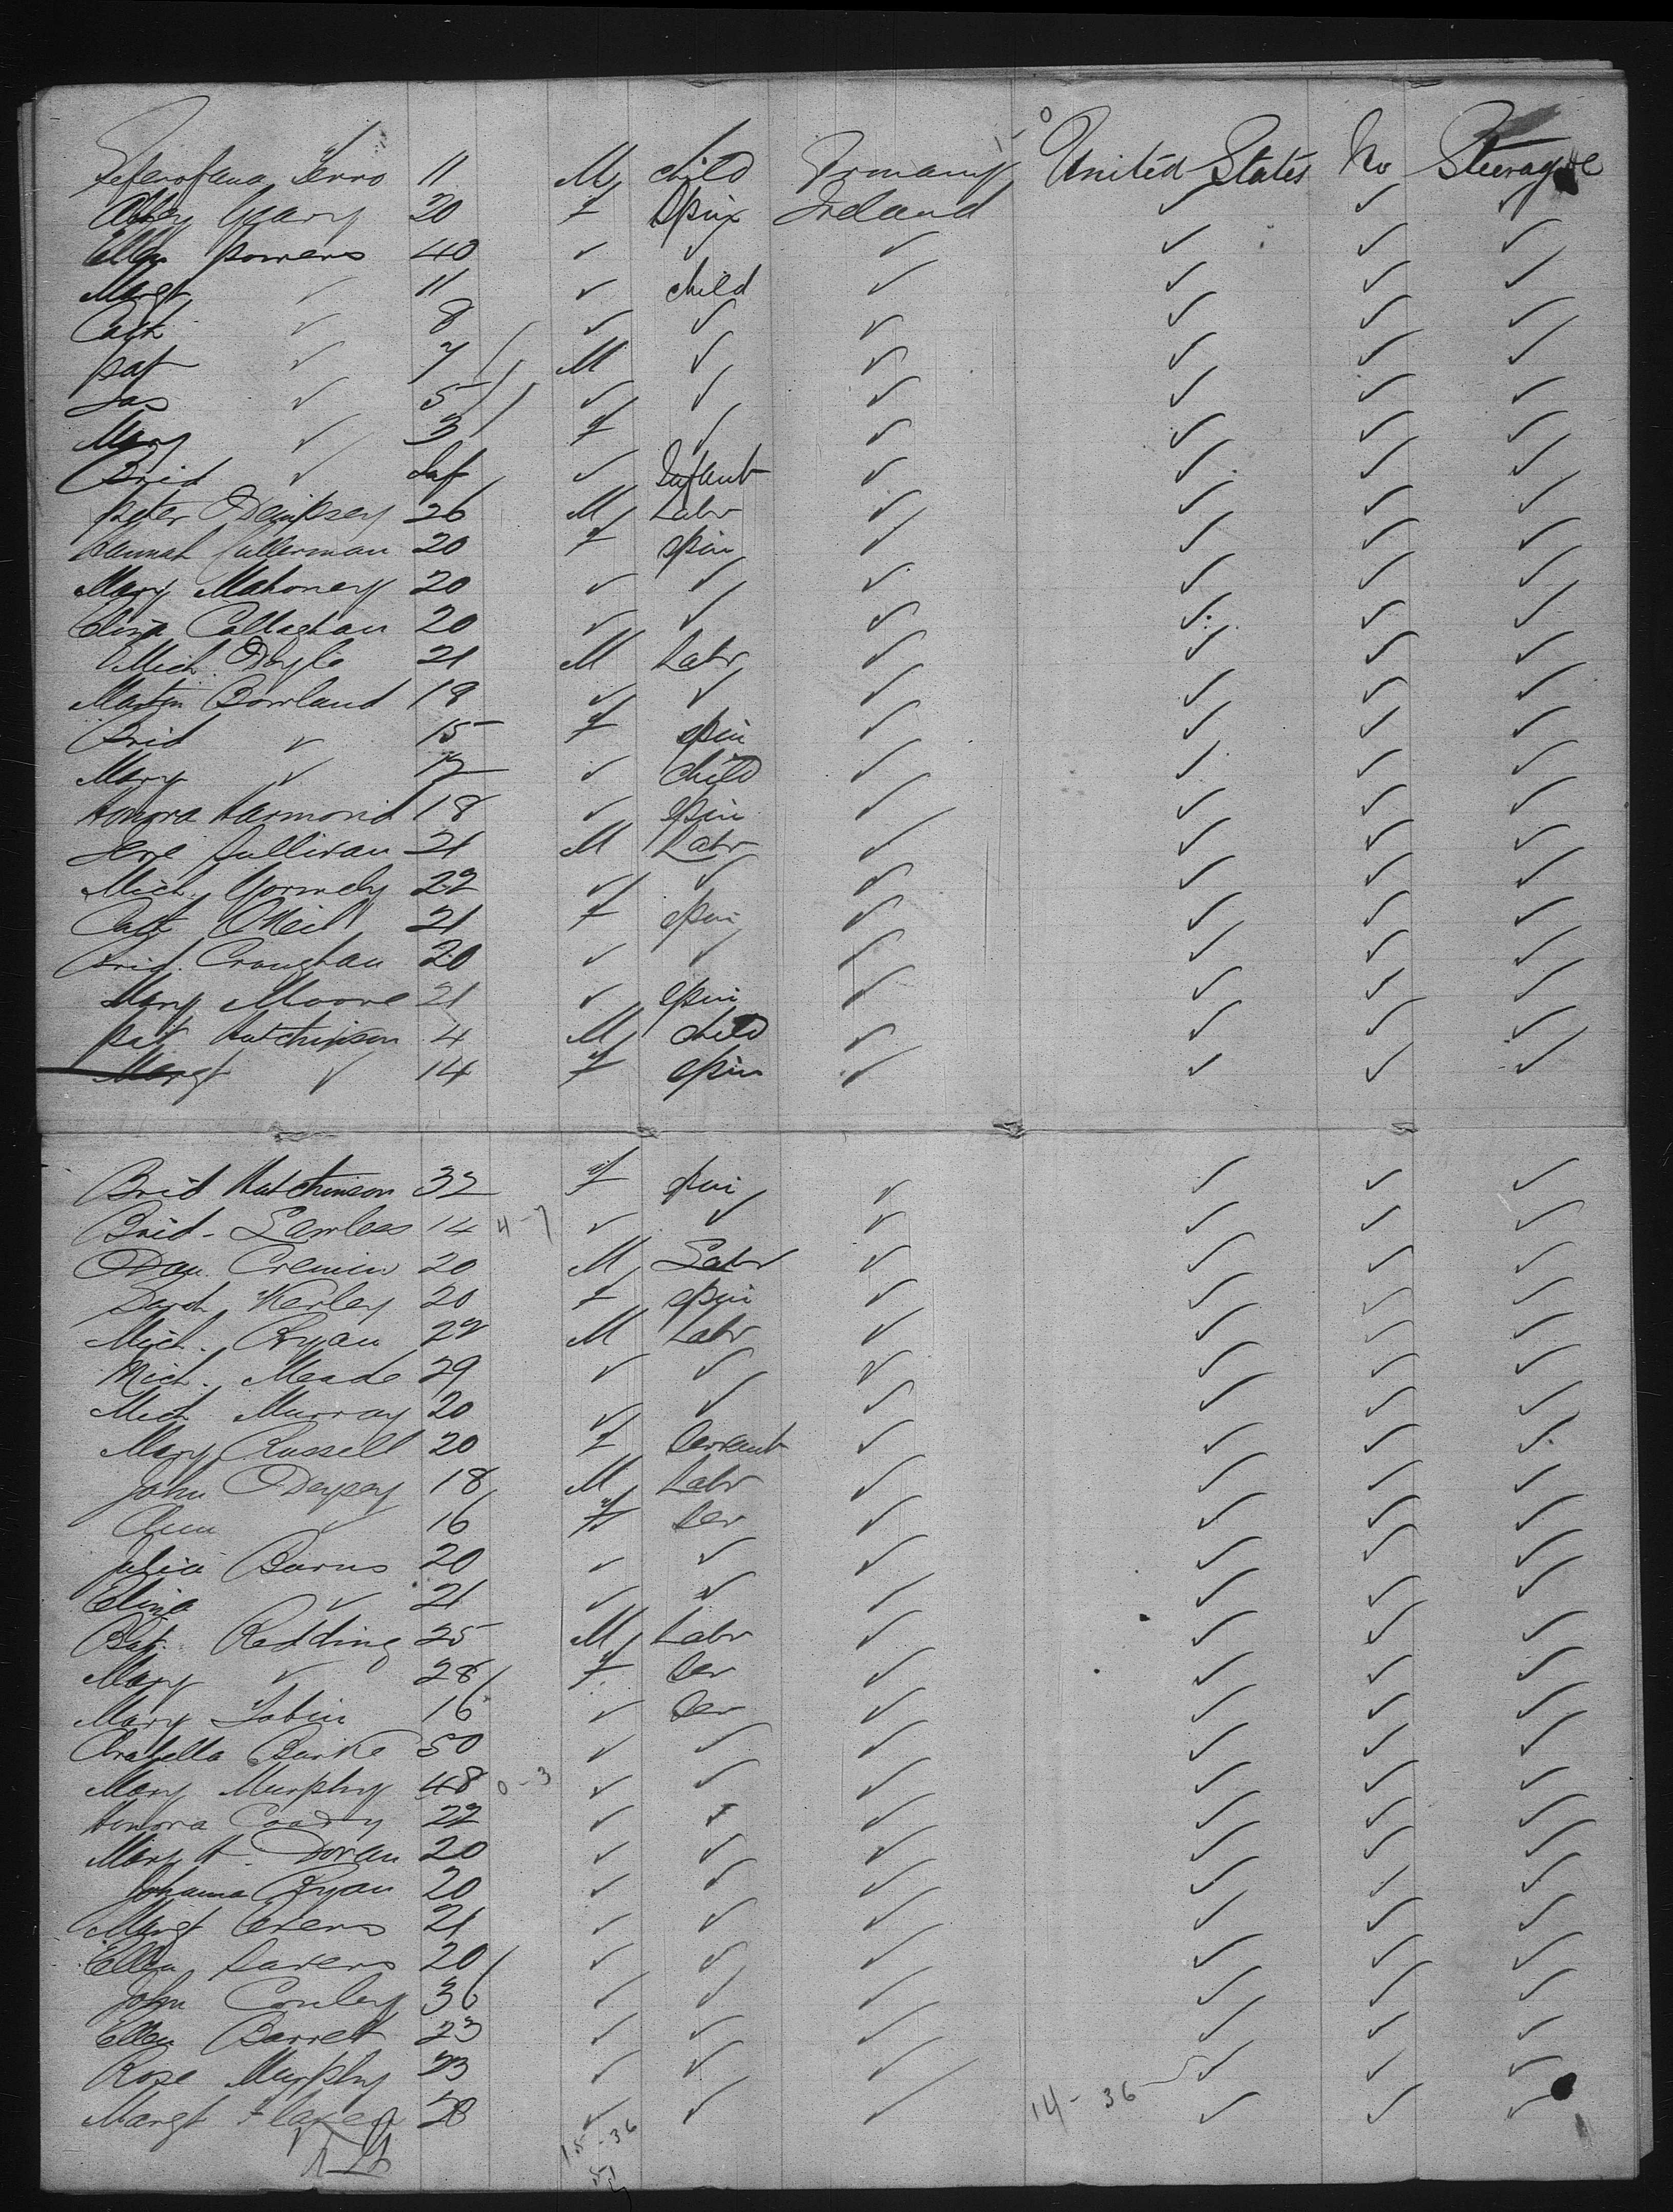 11 M child Germany United States No Steerage
Geary 20 f Spin Ireland ✓ ✓ ✓
Ellen Powers 40 ✓ ✓ ✓ ✓ ✓ ✓
Margt ✓ 11 ✓ child ✓ ✓ ✓ ✓
Cath ✓ 8 ✓ ✓ ✓ ✓ ✓ ✓
Pat ✓ 7 M ✓ ✓ ✓ ✓ ✓
Jas ✓ 5 ✓ ✓ ✓ ✓ ✓ ✓
Mary ✓ 3 f ✓ ✓ ✓ ✓ ✓
Brid ✓ Inf ✓ Infant ✓ ✓ ✓ ✓
Peter Dempsey 26 M Labr ✓ ✓ ✓ ✓
Hannah Cullerman 20 f Spin ✓ ✓ ✓ ✓
Mary Mahoney 20 ✓ ✓ ✓ ✓ ✓ ✓
Eliza Callaghan 20 ✓ ✓ ✓ ✓ ✓ ✓
Mich. Doyle 21 M Labr ✓ ✓ ✓ ✓
Martin Bowland 19 ✓ ✓ ✓ ✓ ✓ ✓
Brid ✓ 15 f Spin ✓ ✓ ✓ ✓
Mary ✓ ✓ child ✓ ✓ ✓ ✓
Honora Harmond 18 ✓ Spin ✓ ✓ ✓ ✓
Jere Sullivan 21 M Labr ✓ ✓ ✓ ✓
Mich. Gormely 22 ✓ ✓ ✓ ✓ ✓ ✓
Cath ONeil 21 f Spin ✓ ✓ ✓ ✓
Brid. Croughan 20 ✓ ✓ ✓ ✓ ✓ ✓
Mary Moore 21 ✓ Spin ✓ ✓ ✓ ✓
Pat Hutchinson 4 M child ✓ ✓ ✓ ✓
Margt ✓ 14 f Spin ✓ ✓ ✓ ✓
Brid Hutchinson 32 f Spin ✓ ✓ ✓ ✓
Brid - Lawless 14 4-7 ✓ ✓ ✓ ✓ ✓ ✓
Dan. Cremin 20 M Labr ✓ ✓ ✓ ✓
Sarah Kerley 20 f Spin ✓ ✓ ✓ ✓
Mich. Ryan 22 M Labr ✓ ✓ ✓ ✓
Mich. Meade 29 ✓ ✓ ✓ ✓ ✓ ✓
Mich Murray 20 ✓ ✓ ✓ ✓ ✓ ✓
Mary Russell 20 f Servant ✓ ✓ ✓ ✓
John 18 M Labr ✓ ✓ ✓ ✓
Ann ✓ 16 f Ser ✓ ✓ ✓ ✓
Julia Burns 20 ✓ ✓ ✓ ✓ ✓ ✓
Eliza ✓ 21 ✓ ✓ ✓ ✓ ✓ ✓
Pat. Redding 25 M Labr ✓ ✓ ✓ ✓
Mary ✓ 28 f Ser ✓ ✓ ✓ ✓
Mary Tobin 16 ✓ Ser ✓ ✓ ✓ ✓
Arabella Burke 50 ✓ ✓ ✓ ✓ ✓ ✓
Mary Murphy 48 0-3 ✓ ✓ ✓ ✓ ✓ ✓
Honora Coady 22 ✓ ✓ ✓ ✓ ✓ ✓
Mary A. Doran 20 ✓ ✓ ✓ ✓ ✓ ✓
Johanna Ryan 20 ✓ ✓ ✓ ✓ ✓ ✓
Margt 21 ✓ ✓ ✓ ✓ ✓ ✓
Ellen 20 ✓ ✓ ✓ ✓ ✓ ✓
John Conley 36 ✓ ✓ ✓ ✓ ✓ ✓
Ellen Barrett 23 ✓ ✓ ✓ ✓ ✓ ✓
Rose Murphy 23 ✓ ✓ ✓ ✓ ✓ ✓
Margt 28 ✓ ✓ ✓ 14-36 ✓ ✓ ✓
15-36